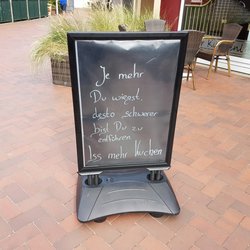 Je mehr
Du wiegst,
desto schwerer
bist Du zu
entführen
Iss mehr Kuchen